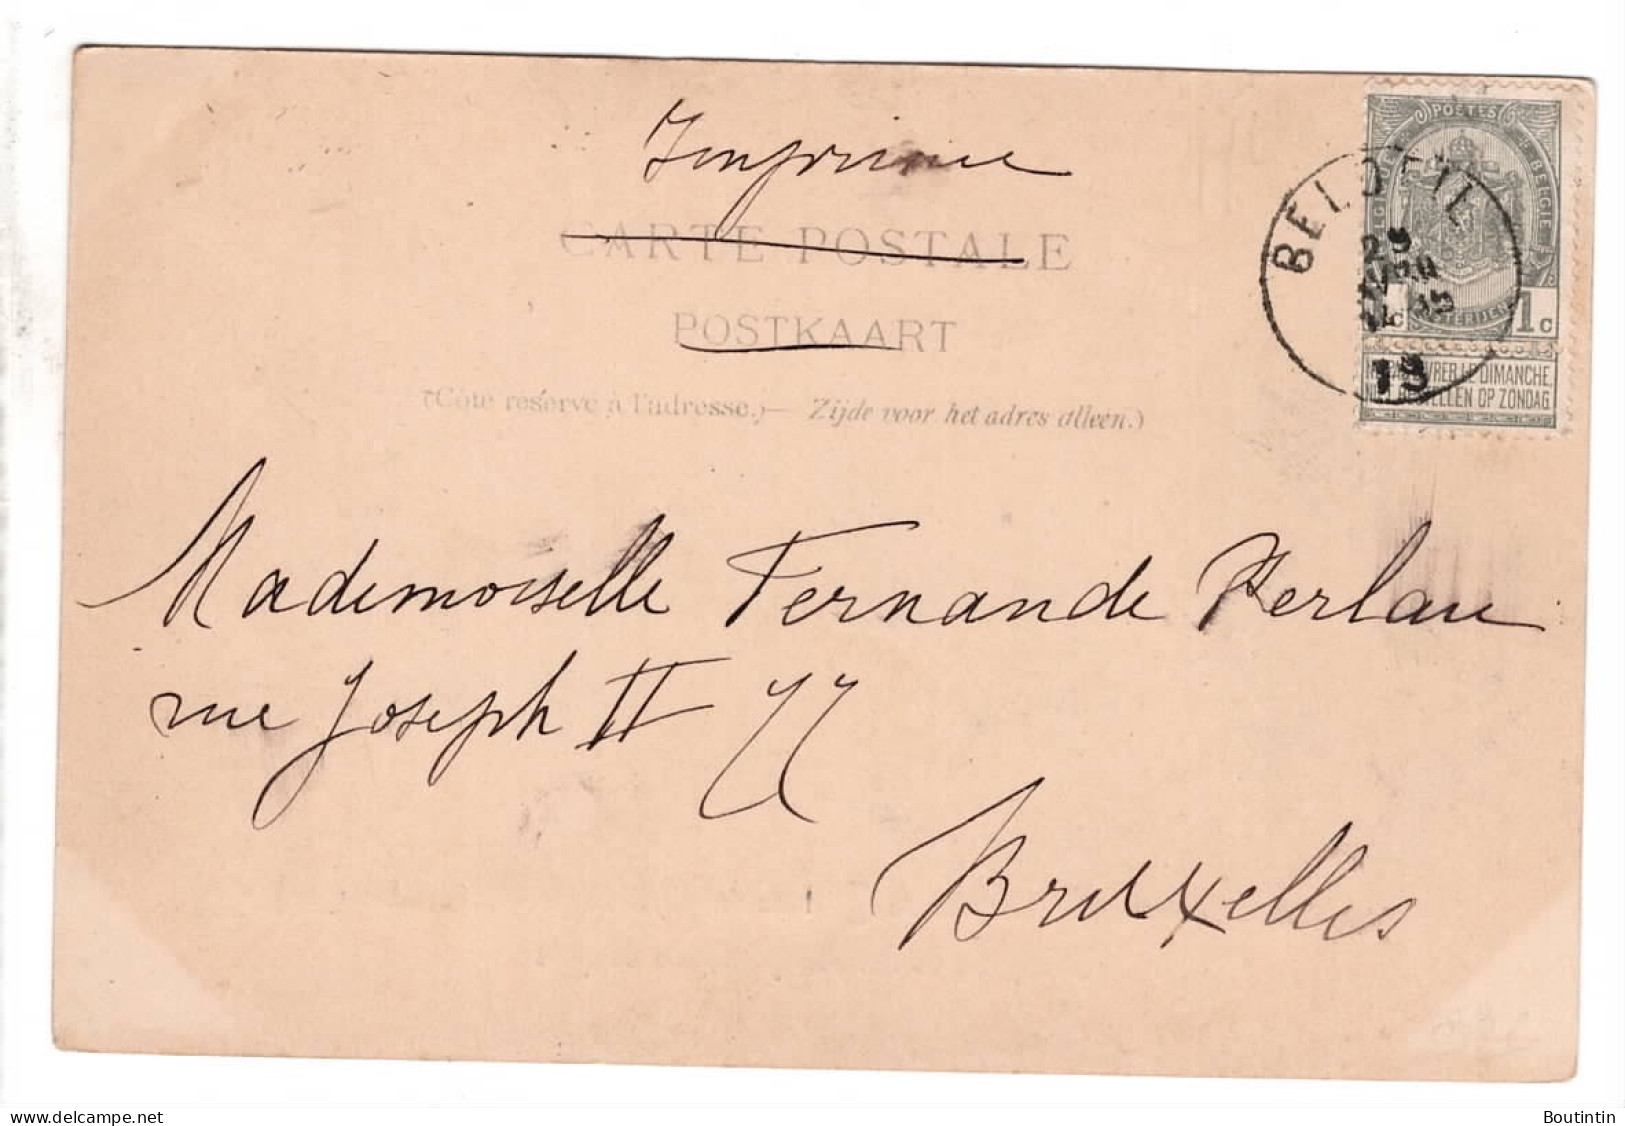 Imprimé
CARTE POSTALE
POSTKAART
(Côté réservé à l'adresse.) — Zijde voor het adres alleen.)
BELOEIL
29
AVRIL
19
1c
NE PAS LIVRER LE DIMANCHE.
NIET BESTELLEN OP ZONDAG
Mademoiselle Fernande
rue Joseph II 77
Bruxelles
delcampe.net
Boutintin